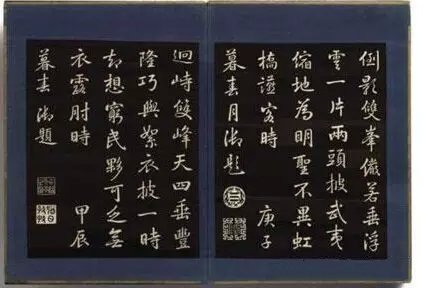 倒影雙峯儼若垂浮
雲一片兩頭披武夷
縮地為明聖不異虹
橋讌客時 庚子
暮春月御題
迴峙雙峰天四垂豐
隆巧與絮衣披一時
却想窮民夥可乏無
衣露肘時 甲辰
暮春御題